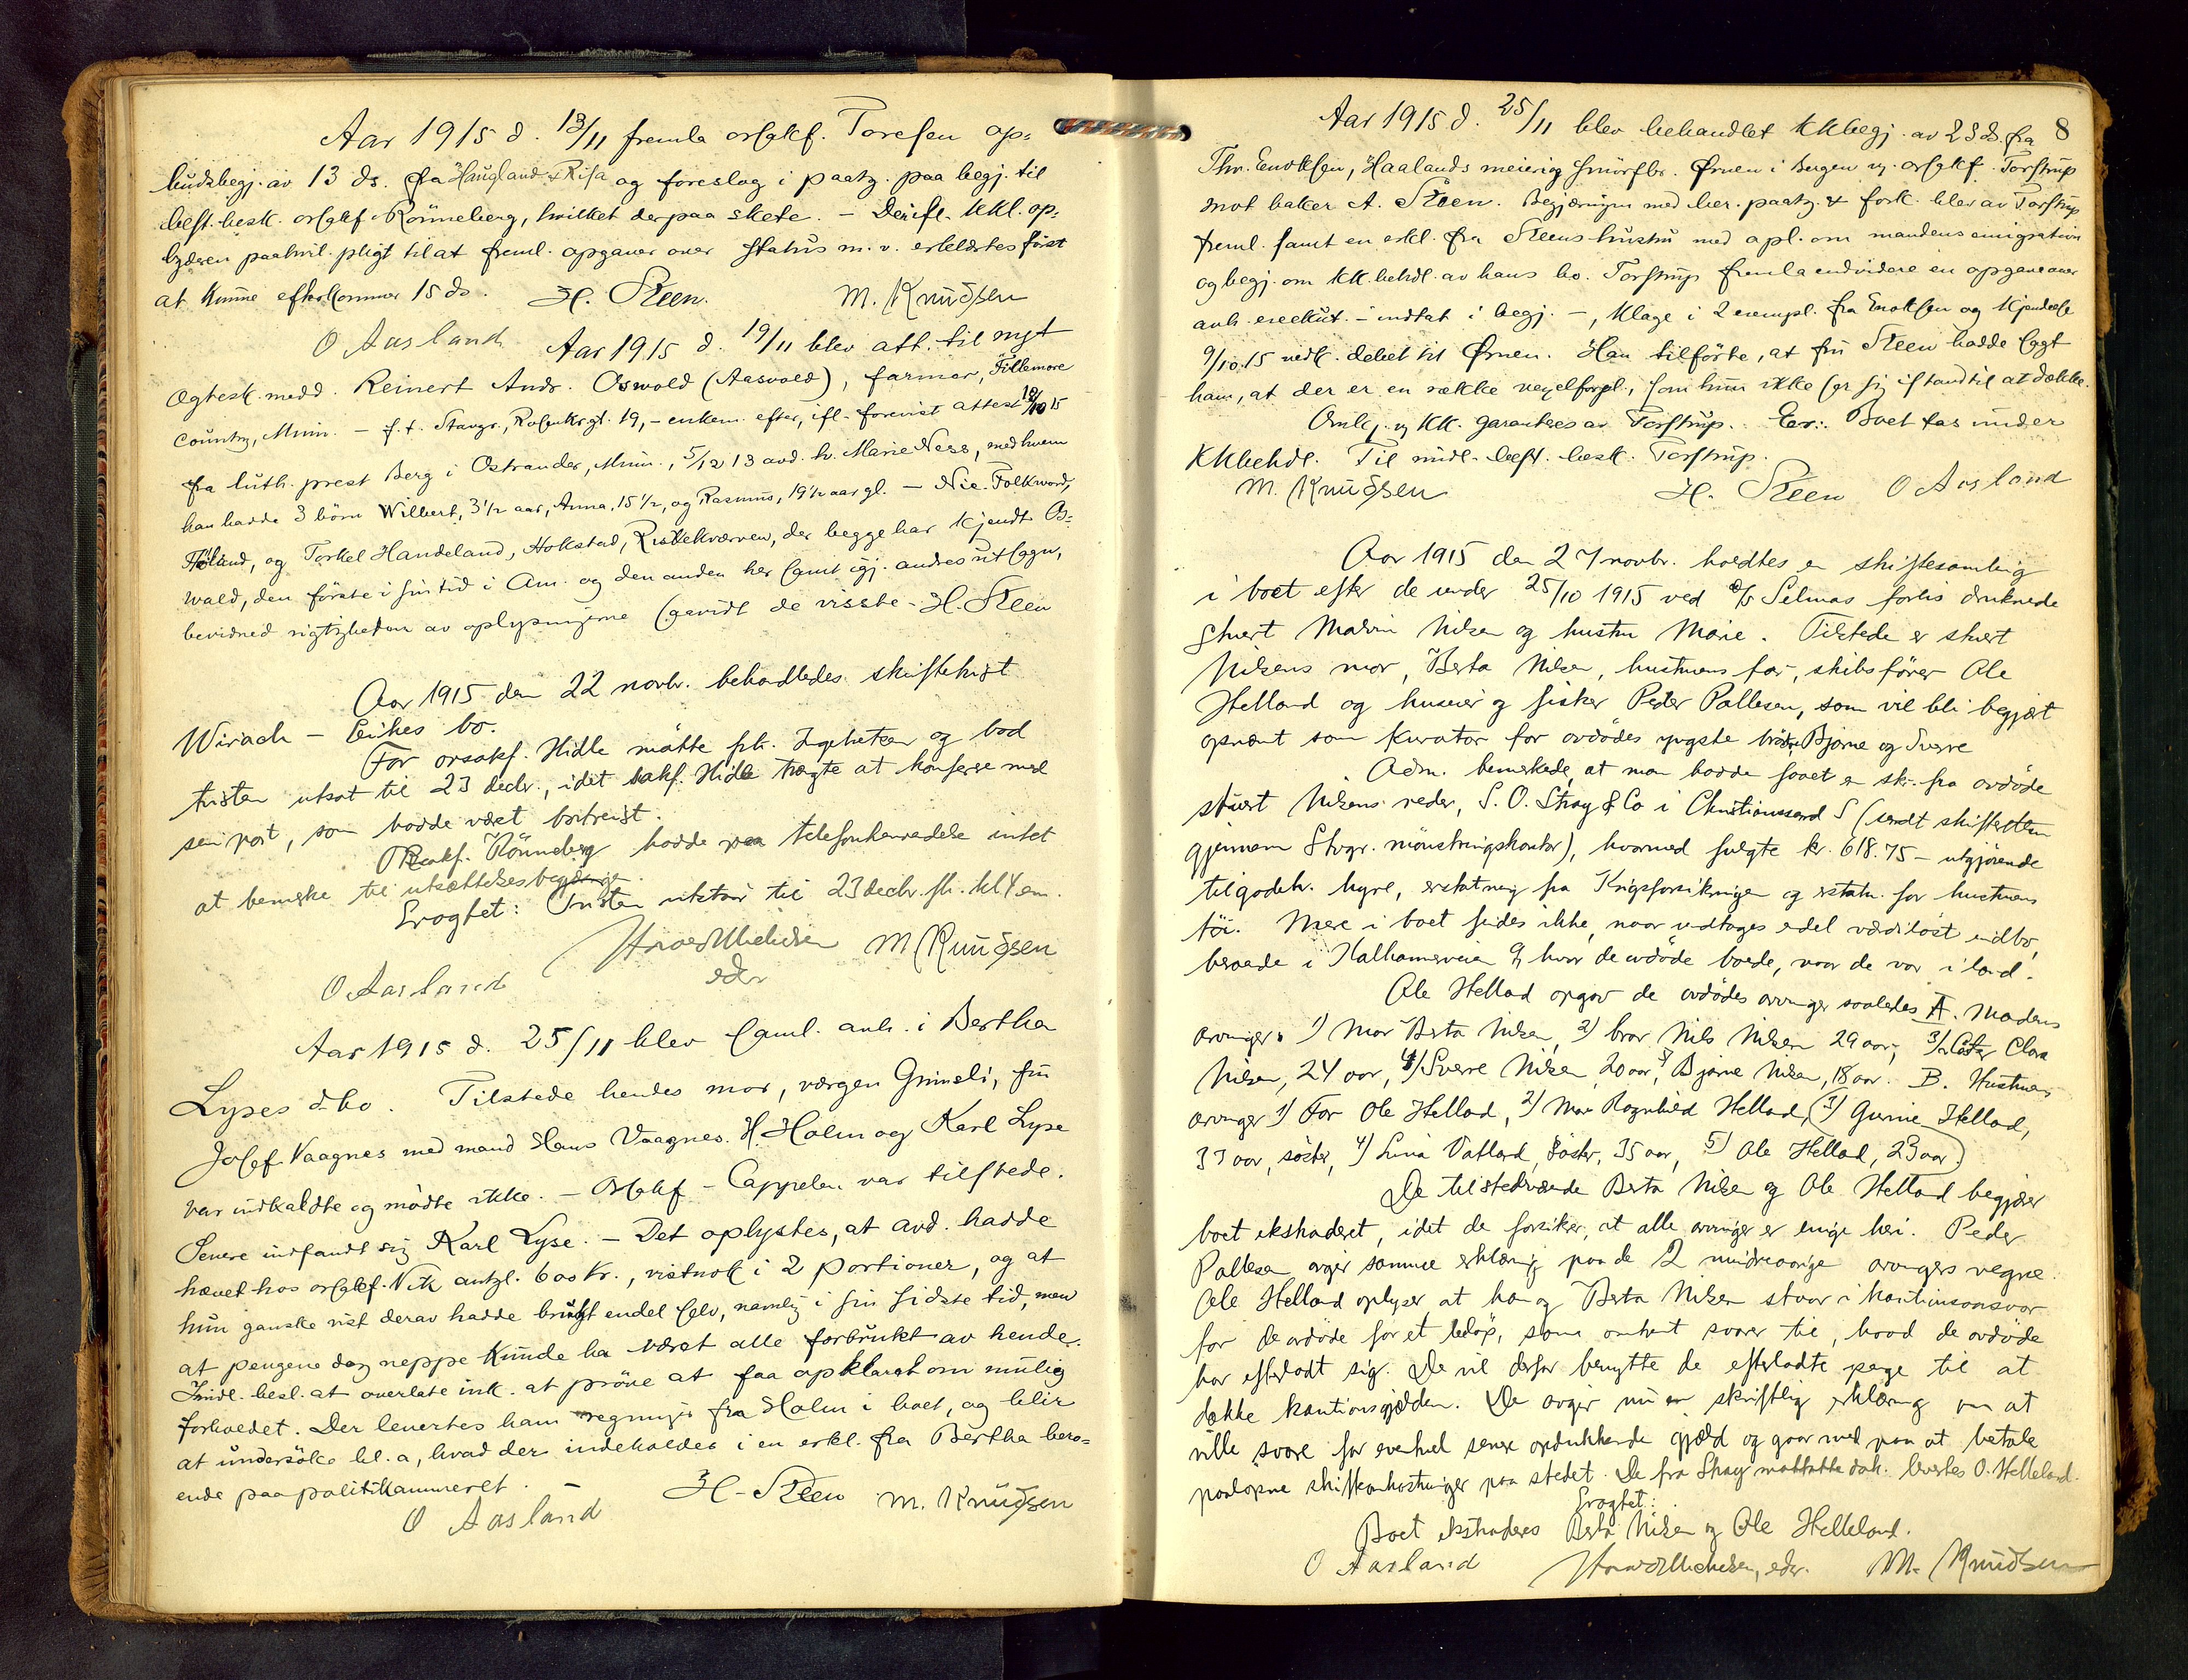 Aar 1915 d. 13/11 fremla orsakf. Toresen op-
budsbegj. av 13 ds. fra Haugland & Risa og foreslog i paatg. paa begj. til
best. besk. orsakf. Rönneberg, hvilket derpaa skete. – Derift. kkl. op-
byderen paahvil. pligt til at freml. opgaver over status m. v. erklærtes först
at kunne efterkommes 15 ds. H. Steen. M. Knudsen
O Aasland
Aar 1915 d. 19/11 blev att. til nyt
egtesk. medd. Reinert Andr. Oswold (Aasvold), farmer, Fillemore
country, Minn. – f. t. Stavgr., Rosenkrgt. 19, – enkem. efter, ifl. forevist attest 18/10 15
fra luth. prest Berg i Ostrander, Minn., 5/12 13 avd. h. Marie Ness, med hvem
han hadde 3 börn Wilbert, 3 1/2 aar, Anna, 15 1/2, og Rasmus, 19 1/2 aar gl. – Nic. Folkword,
Höland, og Torkel Handeland, Hokstad, Ristekværnen, der begge har kjendt Os-
wald, den förste i sin tid i Am. og den anden her samt igj. andres utsagn,
bevidned rigtigheden av oplysningerne saavidt de visste. H. Steen
Aar 1915 den 22 novbr. behandledes skiftetvist
Wirach – Eikes bo.
For orsakf. Hidle mötte fuldm. Ingebretsen og bad
fristen utsat til 23 decbr., idet sakf. Hidle trægte at konferere med
sin part, som hadde været bortreist.
Orsakf. Rönneberg hadde paa telefonhenvendelse intet
at bemerke til utsættelsesbegjæringen.
Eragtet: Fristen utstaar til 23 decbr. ft. kl 4 em.
M Knudsen
O Aasland eder
Aar 1915 d. 25/11 blev saml. anh. i Bertha
Lyses d-bo. Tilstede hendes mor, værgen Grimsli, fru
Josef. Vaagnes med mand Hans Vaagnes. H. Holm og Karl Lyse
var indkaldte og mödte ikke. – Orsakf. Cappelen var tilstede.
Senere indfandt sig Karl Lyse. – Det oplystes, at avd. hadde
hævet hos orsakf. Vik antgl. 600 kr., vistnok i 2 portioner, og at
hun ganske vist derav hadde brugt endel selv, namlig i sin sidste tid, men
at pengene dog neppe kunde ha været alle forbrukt av hende.
Imidl. besl. at overlate ink. at pröve at faa opklaret om mulig
forhoedet. Der levertes ham regninger fra Holm i boet, og blir
at undersöke bl. a, hvad der indeholdes i en erkl. fra Bertha bero-
ende paa politikammeret. – H. Steen M. Knudsen
O Aasland
8
Aar 1915 d. 25/11 blev behandlet kkbegj. av 23 ds. fra
Thv. Enoksen, Haalands meieri og smörfbr. Ørnen i Bergen v. orsakf. Torstrup
mot baker A. Steen. Begjæringen med her. paatg. & fork. blev av Torstrup
freml. samt en erkl. fra Steens hustru med opl. om mandens emigration
og begj. om kk. behdl. av hans bo. Torstrup fremla endvidere en opgave over
anh. execut. – indtat i begj. –, klage i 2 exempl. fra Enoksen og kjendelse
9/10.15 vedk. debet til Ørnen. Han tilförte, at fru Steen hadde sagt
ham, at der er en række vexelforpl., som hun ikke ser sig istand til at dække.
Omk j. og KK. garanteres av Torstrup. Er.: Boet tas under
KKbehdl. Til midl. best. besk. Torstrup.
M. Knudsen H. Steen O Aasland
Aar 1915 den 27 novbr. holdtes en skiftesamling
i boet efter de under 25/10 1915 ved S/S Selmas forlis druknede
stuert Malvin Nilsen og hustru Marie. Tilstede er stuert
Nilsens mor, Berta Nilsen, hustruens far, skibsförer Ole
Helland og huseier og fisker Peder Pallesen, som vil bli begjært
opnævnt som kurator for avdödes yngste brödre Bjarne og Sverre
Adm. bemerkede, at man hadde faaet en skr. fra avdöde
stuert Nilsens reder, S. O. Stray & Co i Christianssand S (sendt skifteretten
gjennem Stvgr. mönstringskontor), hvormed fulgte kr. 618.75 – utgjörende
tilgodeh. hyre, erstatning fra Krigsforsikringen og erstatn. for hustruens
töi. Mere i boet findes ikke, naar undtages endel værdilöst indbo,
beroende i Kalhammerveien 9, hvor de avdöde boede, naar de var i land.
Ole Helland opgav de avdödes arvinger saaledes A. Mandens
arvinger: 1) Mor Berta Nilsen, 2) bror Nils Nilsen 29 aar, 3) söster Clara
Nilsen, 24 aar, 4) Sverre Nilsen 20 aar, 5) Bjarne Nilsen, 18 aar. B. Hustruens
arvinger 1) Far Ole Helland, 2) Mor Ragnhild Helland, (3) Gurine Helland,
37 aar, söster, 4) Lina Vatland, söster, 35 aar, 5) Ole Helland, 23 aar)
De tilstedeværende Berta Nilsen og Ole Helland begjærer
boet ekstraderet, idet de forsikrer, at alle arvinger er enige heri. Peder
Pallesen avgir samme erklæring paa de 2 mindreaarige arvingers vegne.
Ole Helland oplyser at han og Berta Nilsen staar i kautionsansvar
for de avdöde for et belöp, som omtrent svarer til, hvad de avdöde
har efterladt sig. De vil derfor benytte de efterladte penge til at
dække kautionsgjælden. De avgir nu en skriftlig erklæring om at
ville svare for eventuel senere opdukkende gjæld og gaar med paa at betale
paalöpne skifteomkostninger paa stedet. De fra Stray mottatte dok. levertes O. Helleland.
Eragtet:
Boet ekstraderes Berta Nilsen og Ole Helleland.
O Aasland eder. M. Knudsen